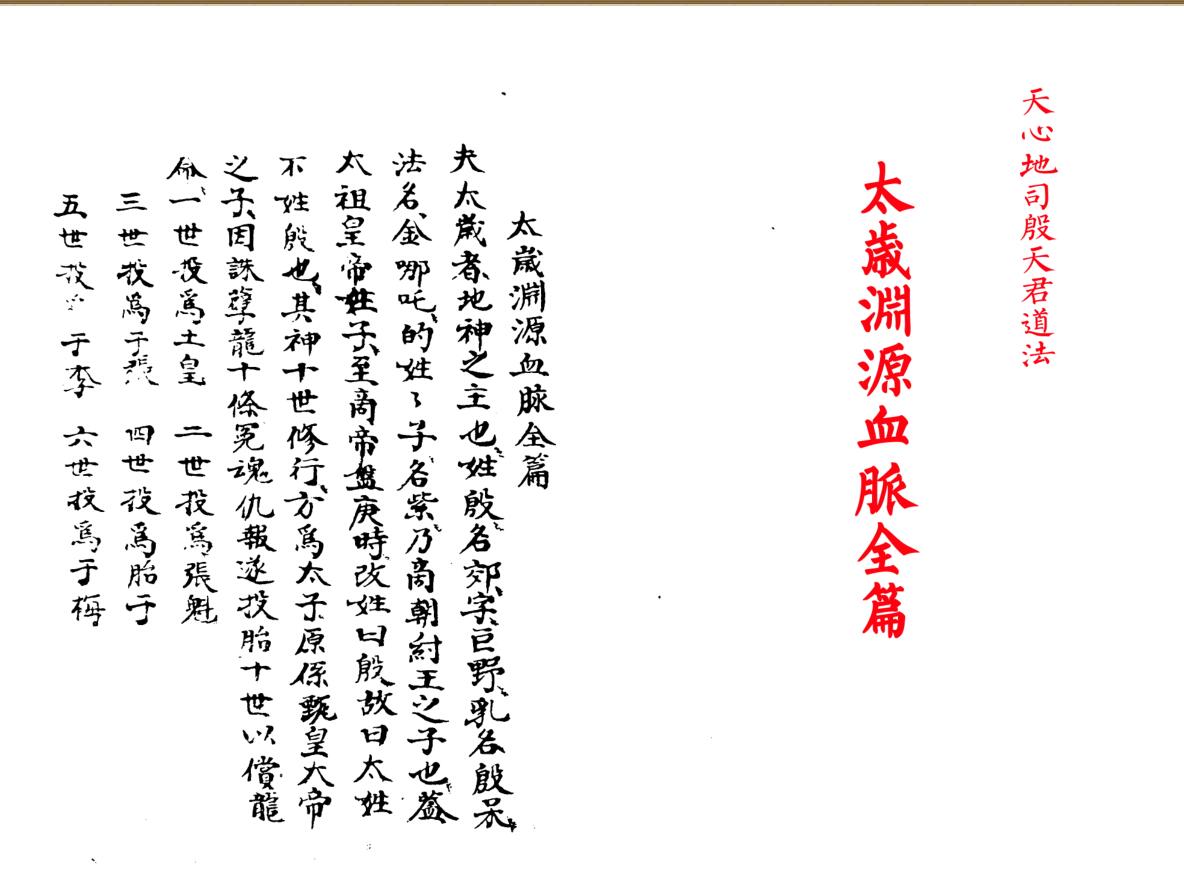 天心地司殷天君道法
太歲淵源血脈全篇
太歲淵源血脉全篇
夫太歲者地神之主也姓殷名郊字巨野乳名殷呆
法名金哪吒的姓〻子名紫乃商朝紂王之子也蓋
太祖皇帝姓子至商帝盤庚時改姓曰殷故曰太姓
不姓殷也其神十世修行方爲太子原係甄皇大帝
之子因誅孽龍十條冤魂仇報遂投胎十世以償龍
命一世投爲土皇 二世投爲張魁
三世投爲于張 四世投爲胎于
五世投 于李 六世投爲于梅